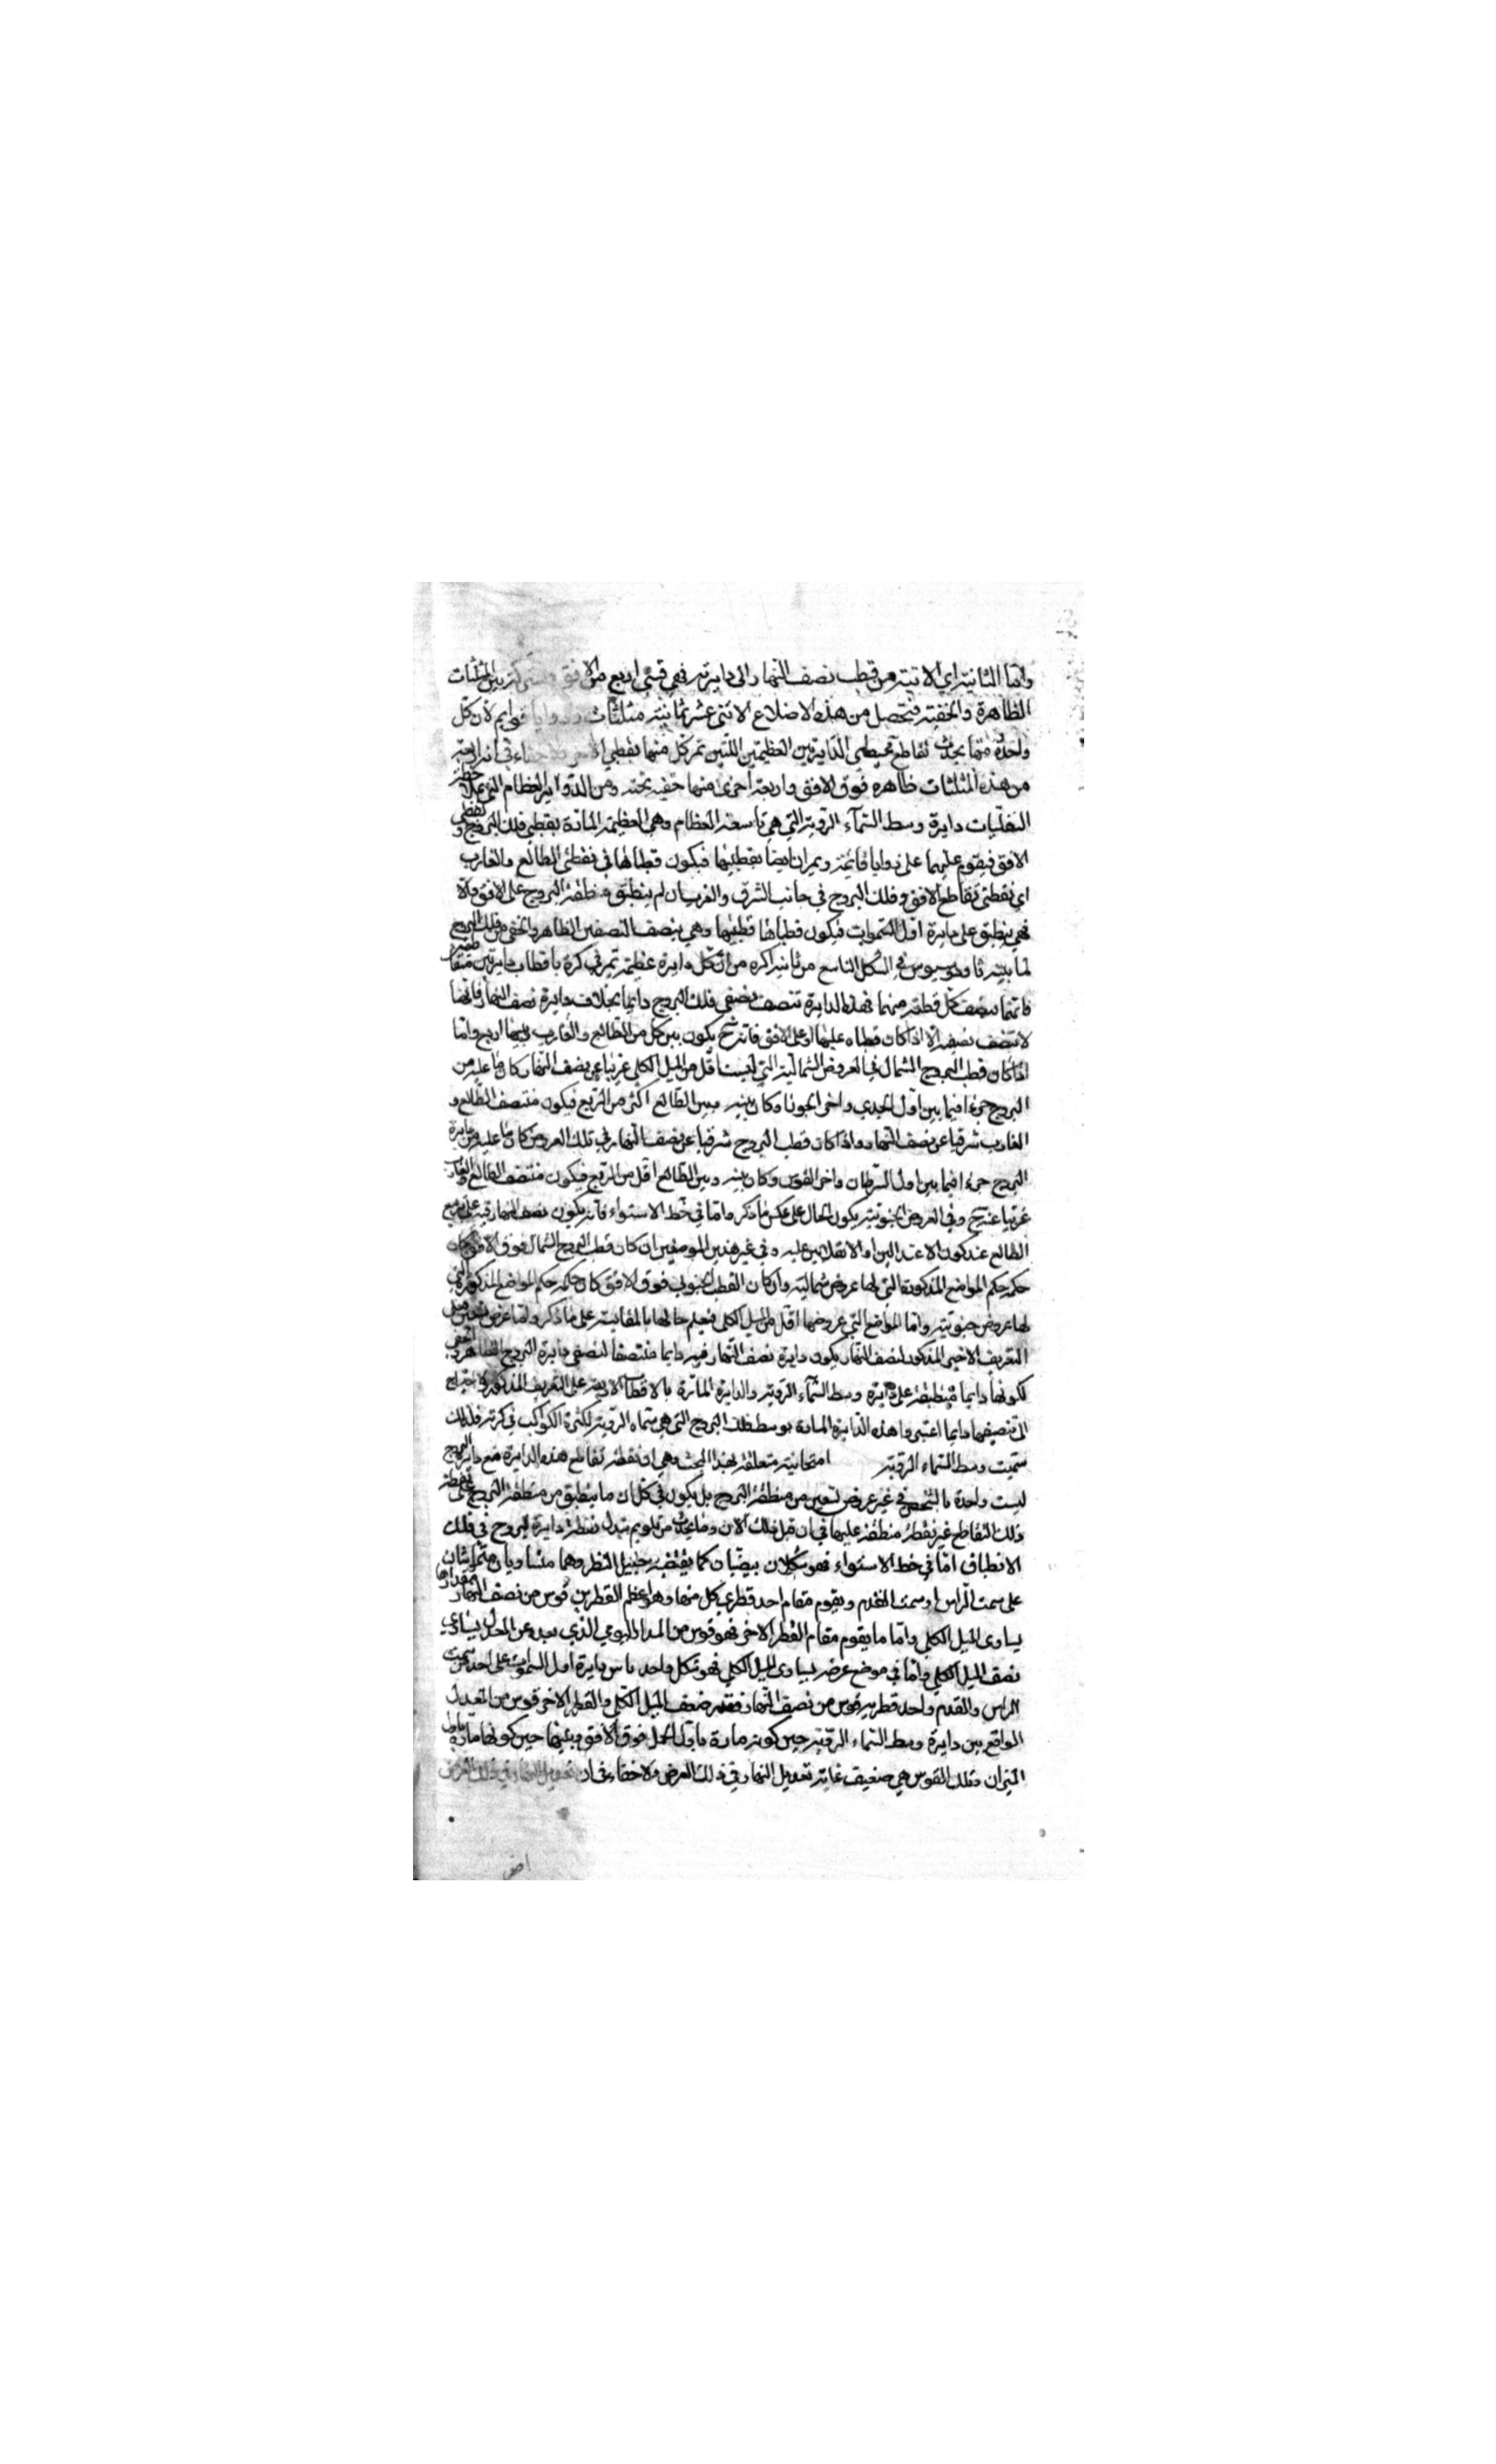 واما الثانية اي الاتية من قطب نصف النهار الى دايرته فهي قسي اربع من الافق مشتركة بين المثلثات
الظاهرة والخفية فيحصل من هذه الاضلاع الاثنى عشر ثمانية مثلثات وزوايا قوايم لان كل
واحدة منها يحدث تقاطع محيطي الدايرتين العظيمتين اللتين تمر كل منهما بقطبي الاخرى ولا خفاء في ان اربعة
من هذه المثلثات ظاهره فوق الافق واربعة اخرى منها خفيه تحته ومن الدواير العظام التي
السفليات دايرة وسط السمآء الروية التي هي تاسعة العظام وهي العظيمة المارة بقطبي فلك البروج و
الافق فيقوم عليهما على زوايا قائمة ويمران ايضا بقطبيها فيكون قطباها في نقطتي الطالع والغارب
اي نقطتي تقاطع الافق وفلك البروج في جانب الشرق والغرب ان لم ينطبق منطقة البروج على الافق والا
فهي ينطبق على دايرة اول السموات فيكون قطباها قطبيها وهي ينصف النصفين الظاهر والخفي من فلك البروج
لما بينه ثاوذوسيوس في الشكل التاسع من ثانية اكره من ان كل دايرة عظيمة تمر في كرة باقطاب دايرتين متقاطعتين
فانها تنصف كل قطعة منهما فهذه الدايرة تنصف نصفي فلك البروج دايما بخلاف دايرة نصف النهار فانها
لا تنصف نصفيه الا اذا كان قطباه عليها او على الافق فانه ح يكون بين كل من الطالع والغارب وبينها اربع واما
اذا كان قطب البروج الشمال في العروض الشمالية التي ليست اقل من الميل الكلي غربيا عن نصف النهار كان ما عليه من
البروج جزءا فيما بين اول الجدي واخر الجوزا وكان بينه وبين الطالع اكثر من الربع فيكون منتصف الطالع و
الغارب شرقيا عن نصف النهار واذا كان قطب البروج شرقيا عن نصف النهار في تلك العروض كان ما عليه من دايرة
البروج جزءا فيما بين اول السرطان واخر القوس وكان بينه وبين الطالع اقل من الربع فيكون منتصف الطالع والغارب
غربيا عنه ح وفي العروض الجنوبية يكون الحال على عكس ما ذكر واما في خط الاستواء فانه يكون نصف النهار فيه على تربيع
الطالع عند كون الاعتدالين او الانقلابين عليه وفي غير هذين الموضعين ان كان قطب البروج الشمال فوق الافق كان
حكمه حكم المواضع المذكورة التي لها عروض شمالية وان كان القطب الجنوبي فوق الافق كان حكمه حكم المواضع المذكورة التي
لها عروض جنوبية واما المواضع التي عروضها اقل من الميل الكلي فيعلم حالها بالمقايسة على ما ذكر واما عرض تسعين
التعريف الاخير المذكور لنصف النهار يكون دايرة نصف النهار فيه دايما منتصفا لنصفي دايرة البروج الظاهر والخفي
لكونها دايما منطبقة على دايرة وسط السمآء الروية والدايرة المارة بالاقطاب الاربعة على التعريف المذكور ولاحتياج
الى تنصيفهما دايما اعتبروا هذه الدايرة المارة بوسط فلك البروج التي هي سماء الروية لكثرة الكواكب في كرته فلذلك
سميت وسط السماء الروية امتحانية متعلقة بهذا البحث وهي ان نقطة تقاطع هذه الدايرة مع دائرة البروج
ليست واحدة بالشخص في غير عروض تسعين من منطقة البروج بل يكون في كل ان ما ينطبق من منطقة البروج على نقطة
ذلك التقاطع غير نقطة منطقة عليها في ان قبل ذلك الان وما يحدث من توهم تبدل نقطة دايرة البروج في ذلك
الانطباق اما في خط الاستواء فهو شكلان بيضيان كما يقتضيه جليل النظر وهما متساويان متماسان
على سمت الراس او سمت القدم ويقوم مقام احد قطري كل منهما وهو اعظم القطرين قوس من نصف النهار مقدارها
يساوى الميل الكلي واما ما يقوم مقام القطر الاخر فهو قوس من المدار اليومي الذي بعده عن المعدل يساوي
نصف الميل الكلي واما في موضع عرضه يساوى الميل الكلي فهو شكل واحد ماس دايرة اول السموت على احد سمت
الراس والقدم واحد قطريه قوس من نصف النهار فقدره ضعف الميل الكلي والقطر الاخر قوس من المعدل
الواقع بين دايرة وسط السماء الروية حين كونه مارة باول الحمل فوق الافق وبينها حين كونها مارة باول
الميزان وتلك القوس هي ضعف غاية تعديل النهار في ذلك العرض ولا خفاء في ان تعديل النهار في ذلك العرض